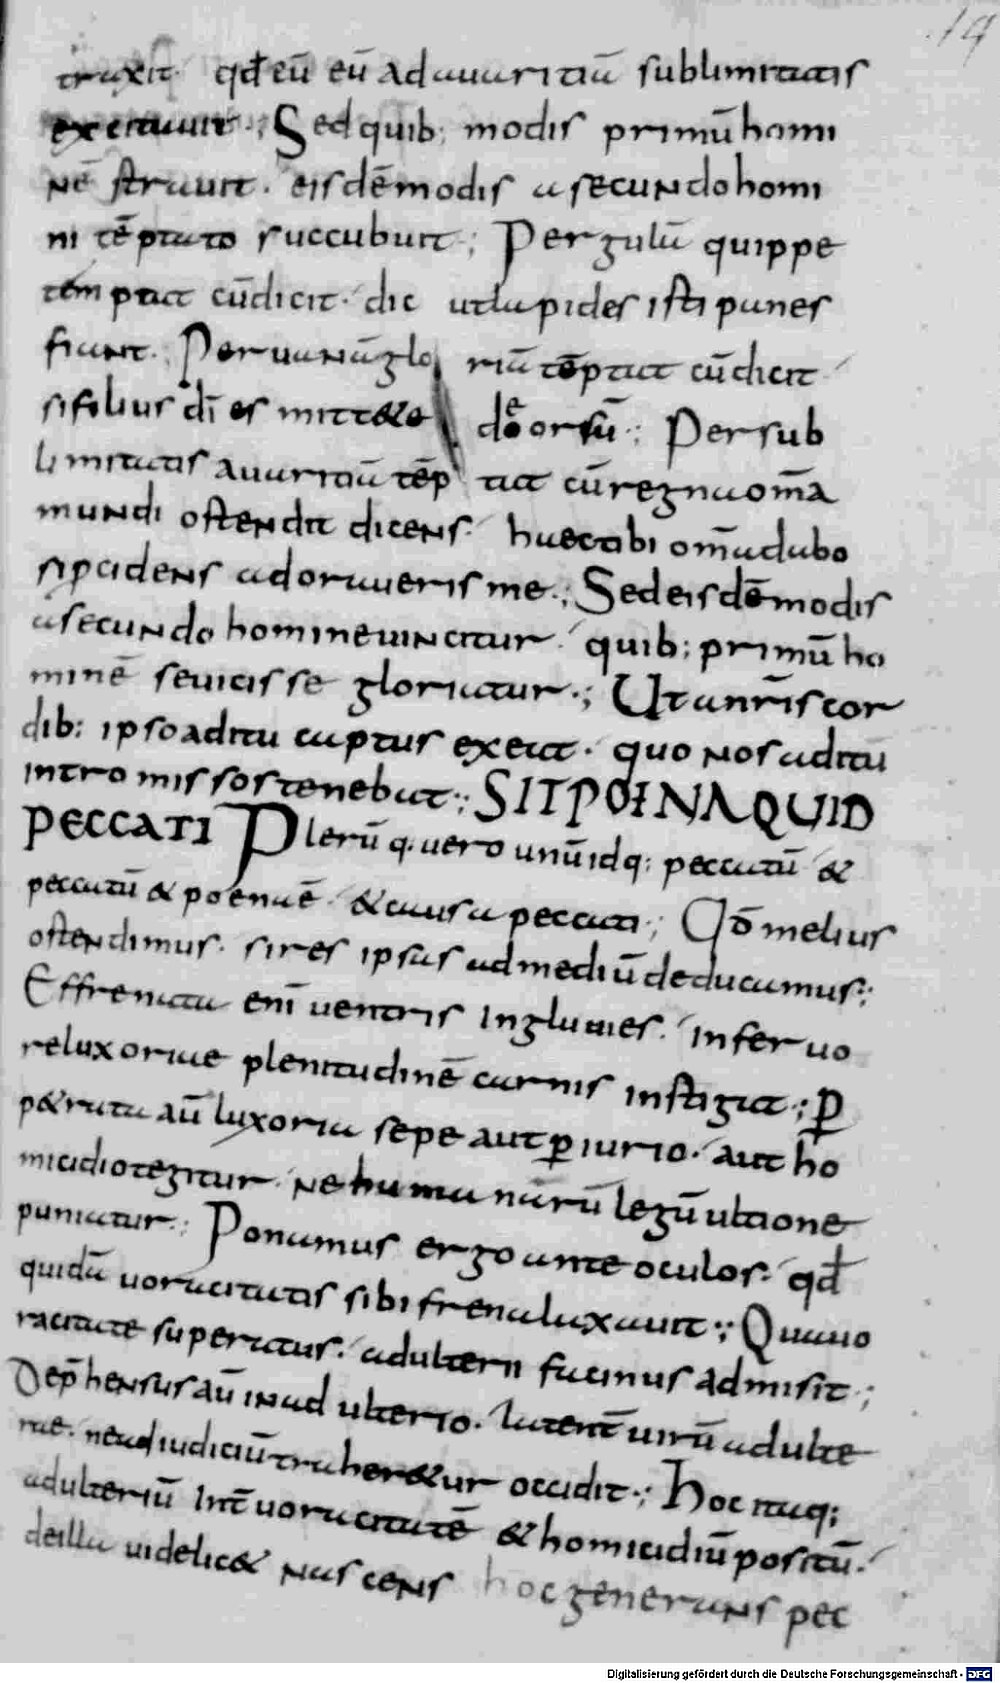 .19
traxit. qđ eū eū ad auaritiā sublimitatis
excitauit.; Sed quib; modis primū homi
nē strauit. eisdē modis a secundo homi
ni tēptato succubuit.; Per gulā quippe
temptat cū dicit. dic ut lapides isti panes
fiant.; Per uanā glo riā tēptat cū dicit
si filius dī es mitte te deorsū.; Per sub
limitatis auaritiā tēp tat cū regna om̄a
mundi ostendit dicens. haec tibi om̄a dabo
si ꝑcidens adoraueris me.; Sed eisdē modis
a secundo homine uincitur. quib; primū ho
minē se uicisse gloriatur.; Ut a nrīs cor
dib; ipso aditu captus exeat. quo nos aditū
intromissos tenebat.; SIT POENA QUID
PECCATI Plerūq. uero unū idq; peccatū &
peccatū & poena ē. & causa peccati.; Qđ melius
ostendimus. si res ipsas ad mediū deducamus.;
Effrenata enī ventris ingluuies. in feruo
re luxoriae plenitudinē carnis instigat.; ꝑ
p&rata aū luxoria sepe aut ꝑiurio. aut ho
micidio tegitur. ne humanarū legū ultione
puniatur.; Ponamus ergo ante oculos. qđ
quidā uoracitatis sibi frena laxauit.; Qua uo
racitate superatus. adulterii facinus admisit.;
Dep̄hensus aū in adulterio. latent̄ uirū adulte
rae. ne ad iudiciū traher&ur occidit.; Hoc itaq;
adulteriū int̄ uoracitatē & homicidiū positū.
de illa uidelic& nascens hoc generans pec
Digitalisierung gefördert durch die Deutsche Forschungsgemeinschaft - DFG